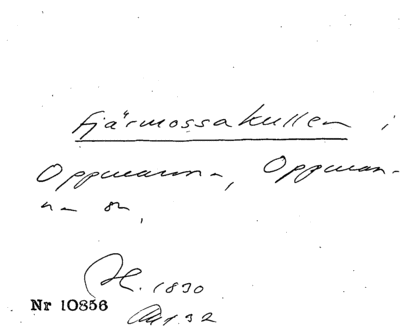 Fjärmossakullen i
Oppmanna, Oppman-
na sn,
1830
Nr 10856